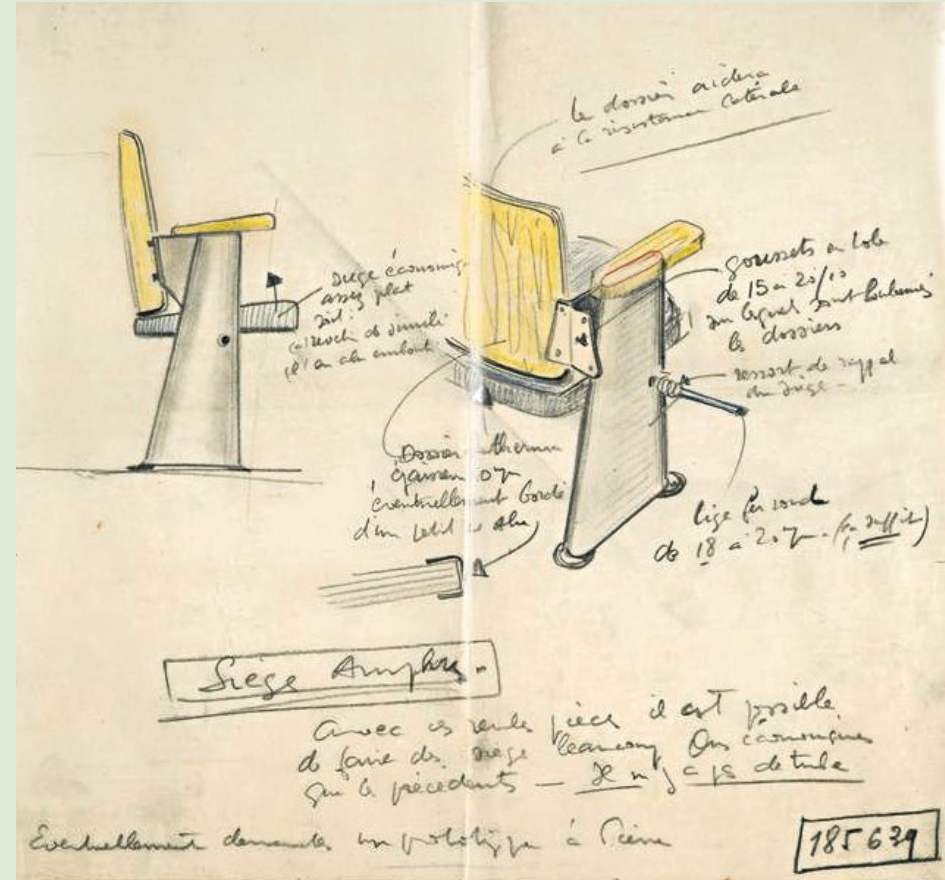 le dossier aidera
à la résistance latérale
siège économique
assez plat
soit :
en alu embouti
goussets en tole
de 15 à 20/10
sur lequel sont boulonnés
les dossiers
ressort de rappel
du siège
Dossier
éventuellement bordé
d'un petit alu
tige fer rond
de 18 à 20 (suffit)
Siège Amphi -
avec ces seules pièces il est possible
de faire des sièges beaucoup plus économiques
que les précédents - Il n'y a pas de tube
Eventuellement demander un prototype à Pierre
185639